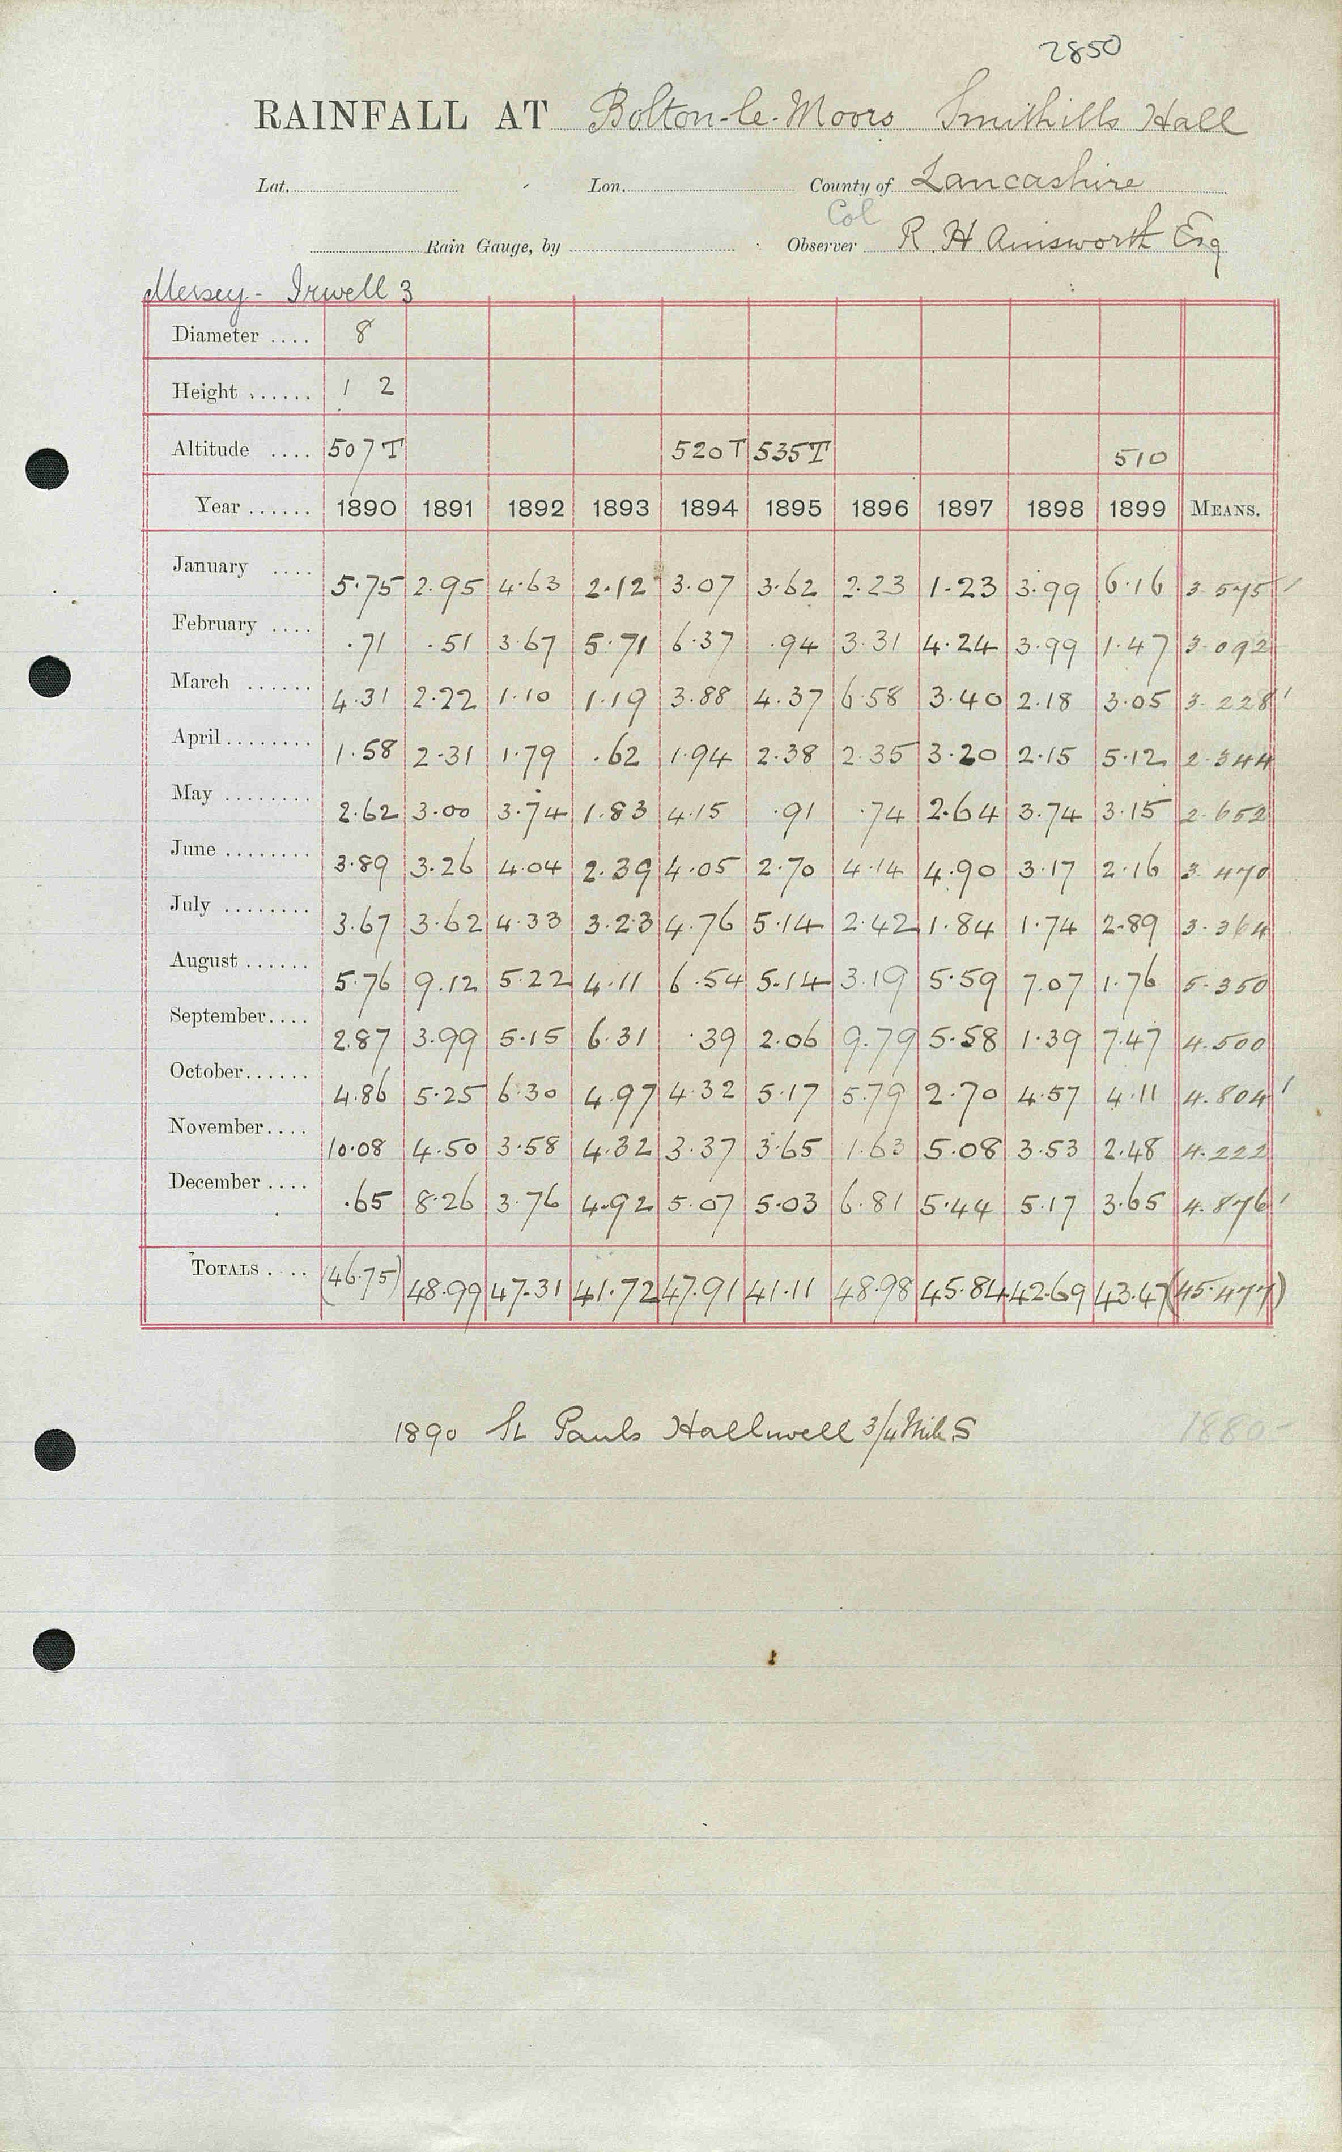 2850
RAINFALL AT Bolton-le-Moors Smithills Hall
Lat. Lon. County of Lancashire
Col
Rain Gauge, by Observer R. H. Ainsworth Esq
Mersey - Irwell 3
Diameter .... 8
Height ...... 1 2
Altitude .... 507 T 520 T 535 T 510
Year ...... 1890 1891 1892 1893 1894 1895 1896 1897 1898 1899 MEANS.
January .... 5.75 2.95 4.63 2.12 3.07 3.62 2.23 1.23 3.99 6.16 3.575
February .... .71 .51 3.67 5.71 6.37 .94 3.31 4.24 3.99 1.47 3.092
March ...... 4.31 2.22 1.10 1.19 3.88 4.37 6.58 3.40 2.18 3.05 3.228
April ........ 1.58 2.31 1.79 .62 1.94 2.38 2.35 3.20 2.15 5.12 2.344
May ........ 2.62 3.00 3.74 1.83 4.15 .91 .74 2.64 3.74 3.15 2.652
June ........ 3.89 3.26 4.04 2.39 4.05 2.70 4.14 4.90 3.17 2.16 3.470
July ........ 3.67 3.62 4.33 3.23 4.76 5.14 2.42 1.84 1.74 2.89 3.364
August ...... 5.76 9.12 5.22 4.11 6.54 5.14 3.19 5.59 7.07 1.76 5.350
September .... 2.87 3.99 5.15 6.31 .39 2.06 9.79 5.58 1.39 7.47 4.500
October ...... 4.86 5.25 6.30 4.97 4.32 5.17 5.79 2.70 4.57 4.11 4.804
November .... 10.08 4.50 3.58 4.32 3.37 3.65 1.63 5.08 3.53 2.48 4.222
December .... .65 8.26 3.76 4.92 5.07 5.03 6.81 5.44 5.17 3.65 4.876
TOTALS .... (46.75) 48.99 47.31 41.72 47.91 41.11 48.98 45.84 42.69 43.47 (45.477)
1890 St Pauls Halliwell 3/4 Mile S
1880-